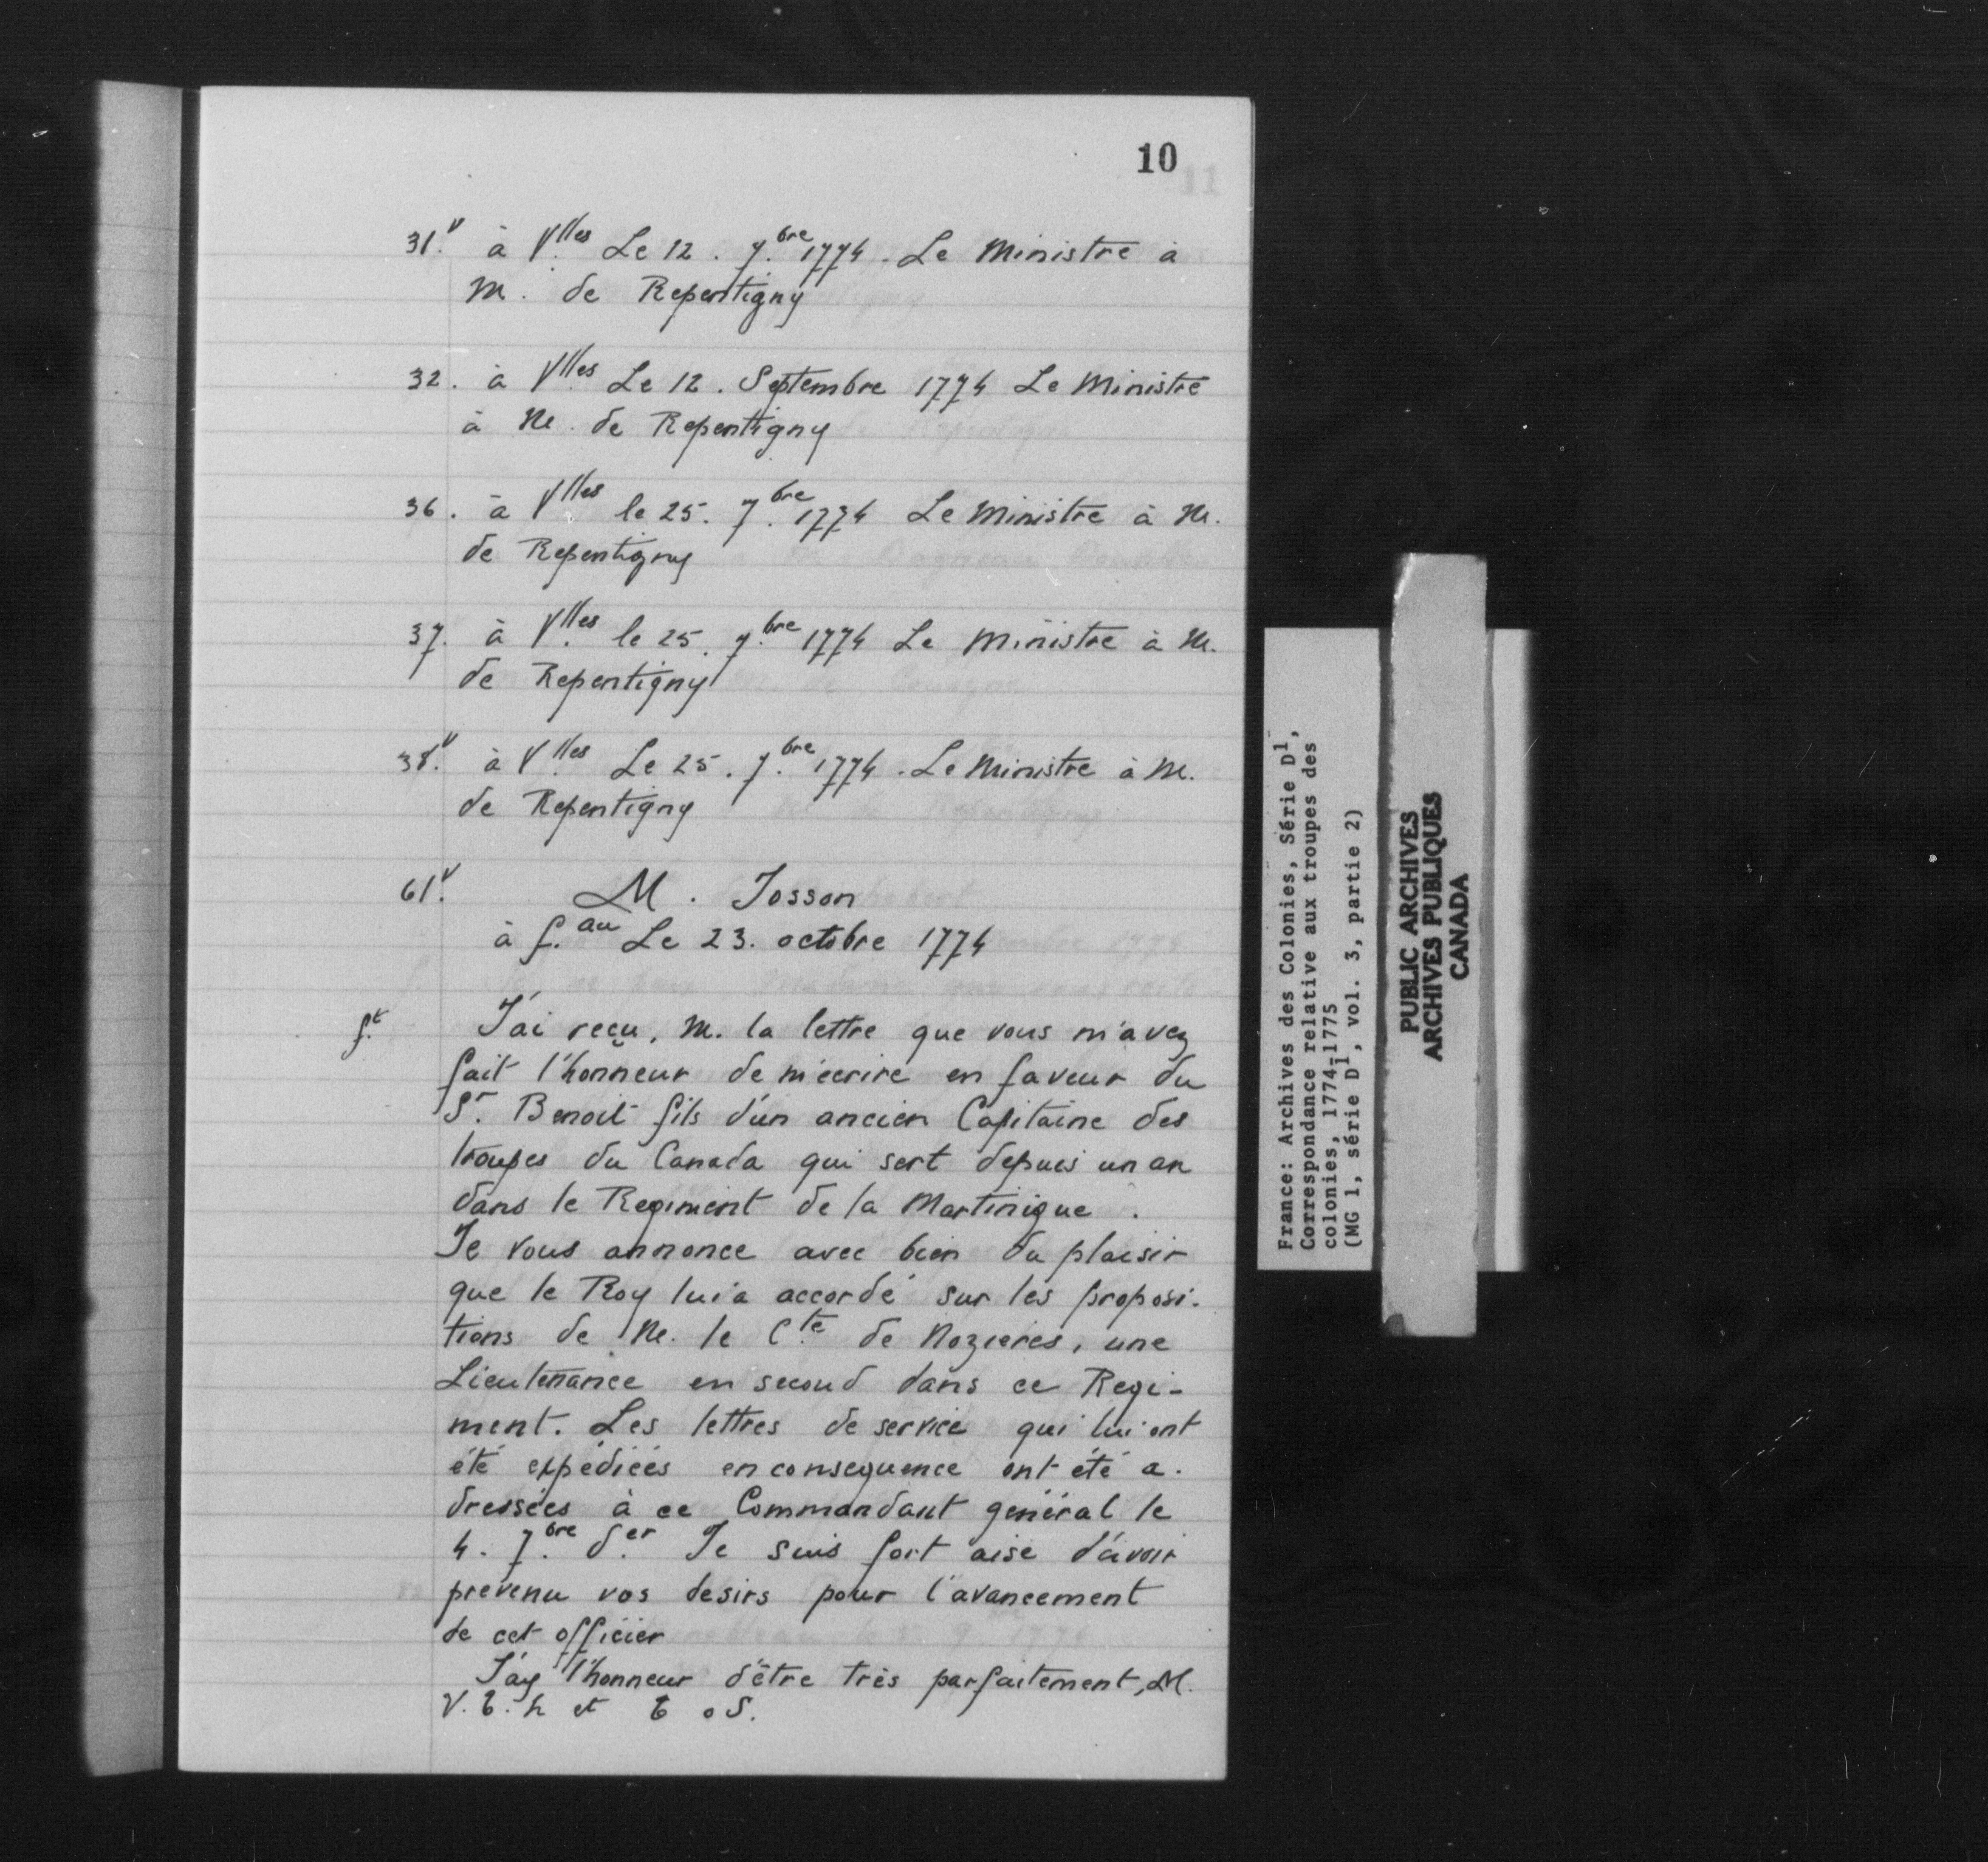 10
31.v à Vlles Le 12. 7.bre 1774. Le Ministre à
M. de Repentigny
32. à Vlles Le 12. Septembre 1774 Le Ministre
à M. de Repentigny
36. à Vlles le 25. 7.bre 1774 Le Ministre à M.
de Repentigny
37. à V.lles le 25. 7.bre 1774 Le Ministre à M.
de Repentigny
38.v à V.lles Le 25. 7.bre 1774. Le Ministre à M.
de Repentigny
61.v M. Josson
à f.au Le 23. octobre 1774
f.t J'ai reçu, M. la lettre que vous m'avez
fait l'honneur de m'ecrire en faveur du
Sr. Benoit fils d'un ancien Capitaine des
troupes du Canada qui sert depuis un an
dans le Regiment de la Martinique.
Je vous annonce avec bien du plaisir
que le Roy lui a accordé sur les proposi-
tions de M. le C.te de Nozieres, une
Lieutenance en second dans ce Regi-
ment. Les lettres de service qui lui ont
été expédiées en consequence ont été a-
dressées à ce Commandant général le
4. 7.bre d.er Je suis fort aise d'avoir
prévenu vos desirs pour l'avancement
de cet officier
J'ay l'honneur d'être très parfaitement, M.
V. t. h et t o S.
France: Archives des Colonies, Série D1,
Correspondance relative aux troupes des
colonies, 1774-1775
(MG 1, série D1, vol. 3, partie 2)
PUBLIC ARCHIVES
ARCHIVES PUBLIQUES
CANADA